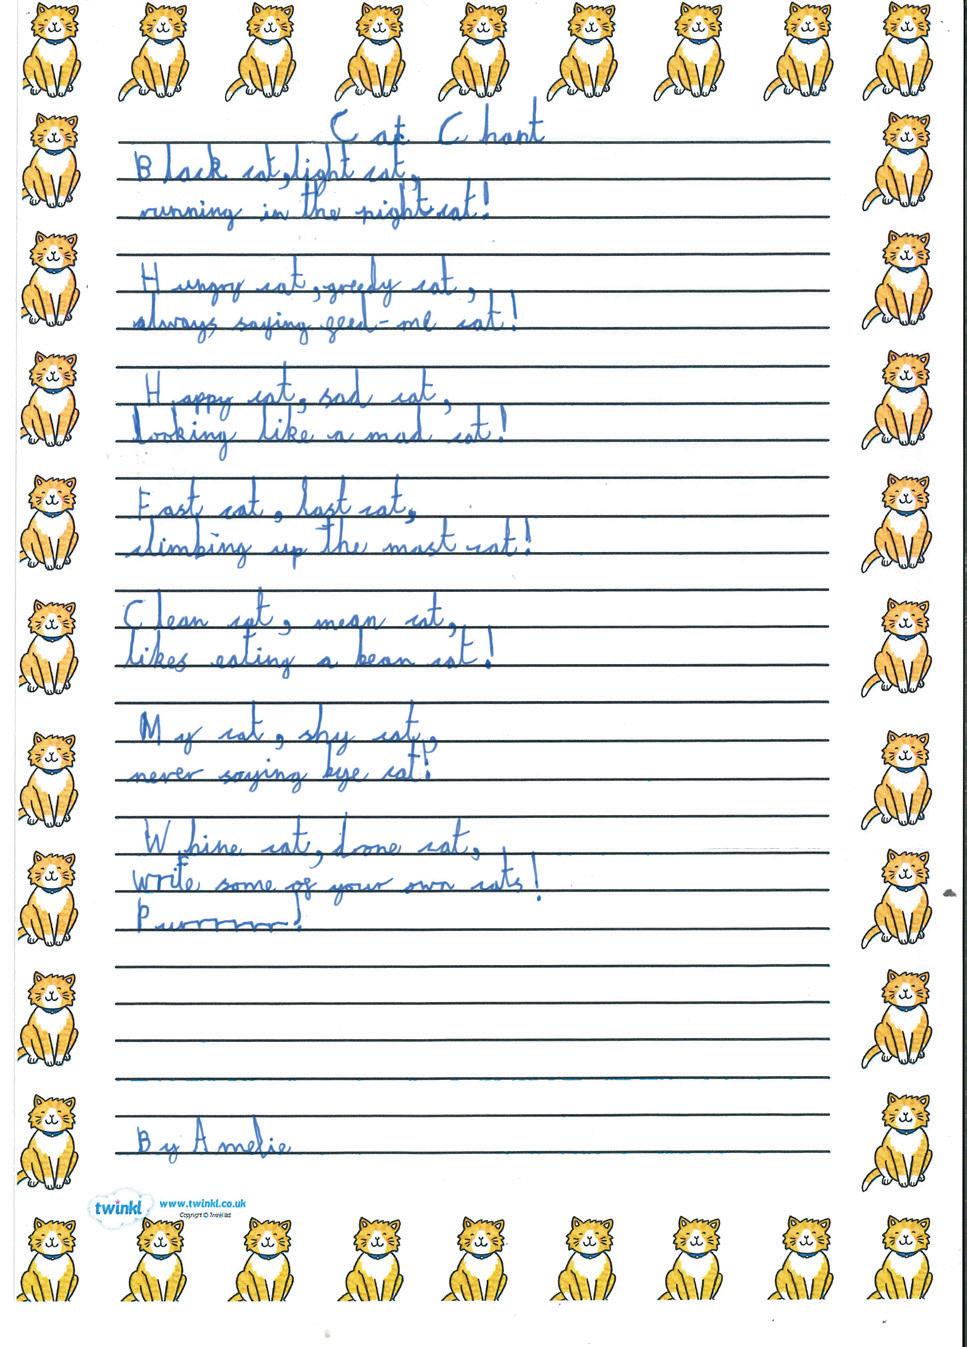 Cat Chant
Black cat, light cat,
running in the night cat!
Hungry cat, greedy cat,
always saying feed-me cat!
Happy cat, sad cat,
looking like a mad cat!
Fast cat, last cat,
climbing up the mast cat!
Clean cat, mean cat,
likes eating a bean cat!
My cat, shy cat,
never saying bye cat!
Whine cat, drone cat,
write some of your own cats!
Purrrrrr!
By Amelie
twinkl www.twinkl.co.uk
Copyright © Twinkl Ltd